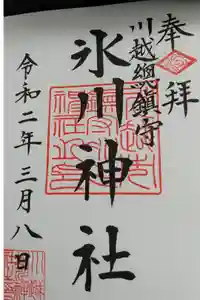 奉拝
川越總鎮守
氷川神社
令和二年三月八日